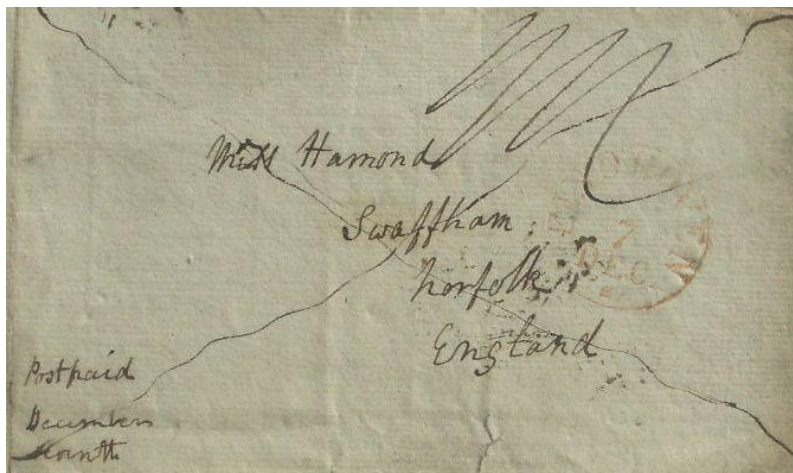 Miss Hamond
Swaffham
Norfolk
England
7
DEC
Postpaid
December